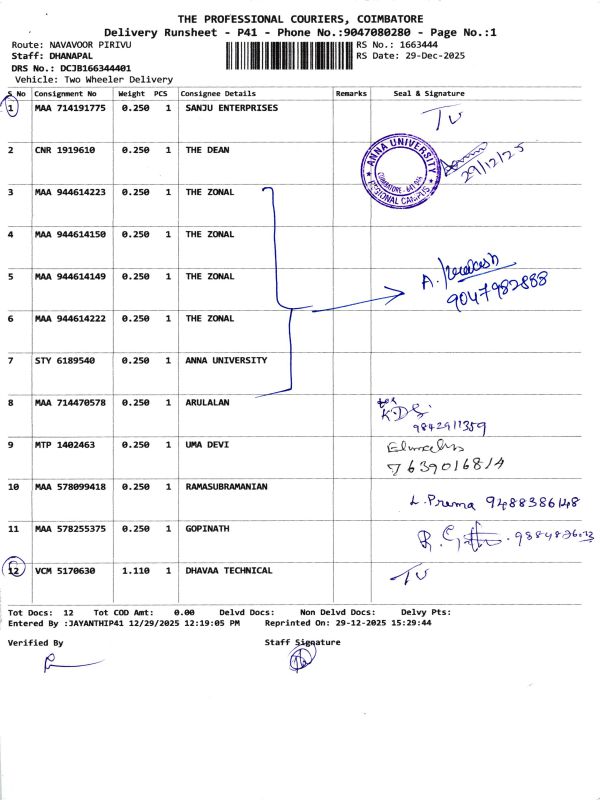 THE PROFESSIONAL COURIERS, COIMBATORE
Delivery Runsheet - P41 - Phone No.:9047080280 - Page No.:1
Route: NAVAVOOR PIRIVU RS No.: 1663444
Staff: DHANAPAL RS Date: 29-Dec-2025
DRS No.: DCJB166344401
Vehicle: Two Wheeler Delivery
S No Consignment No Weight PCS Consignee Details Remarks Seal & Signature
1 MAA 714191775 0.250 1 SANJU ENTERPRISES TU
2 CNR 1919610 0.250 1 THE DEAN
ANNA UNIVERSITY
REGIONAL CAMPUS
29/12/25
3 MAA 944614223 0.250 1 THE ZONAL
4 MAA 944614150 0.250 1 THE ZONAL
5 MAA 944614149 0.250 1 THE ZONAL
9047982888
6 MAA 944614222 0.250 1 THE ZONAL
7 STY 6189540 0.250 1 ANNA UNIVERSITY
8 MAA 714470578 0.250 1 ARULALAN
9842911359
9 MTP 1402463 0.250 1 UMA DEVI
7639016814
10 MAA 578099418 0.250 1 RAMASUBRAMANIAN L. Prema 9488386148
11 MAA 578255375 0.250 1 GOPINATH
12 VCM 5170630 1.110 1 DHAVAA TECHNICAL TU
Tot Docs: 12 Tot COD Amt: 0.00 Delvd Docs: Non Delvd Docs: Delvy Pts:
Entered By :JAYANTHIP41 12/29/2025 12:19:05 PM Reprinted On: 29-12-2025 15:29:44
Verified By Staff Signature